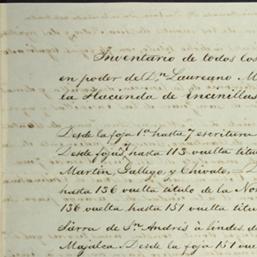 Inventario de todos los
en poder del Dn. Laureano M
la Hacienda de encinillas
Desde la foja 1a. hasta 7 escritura
Desde foja hasta 113 vuelta titu
Martin, Gallego y Chivato.
hasta 136 vuelta titulo de la No
136 vuelta hasta 151 vuelta titu
Sierra de Sn. Andrés á lindes de
Majalca. Desde la foja 151 vue